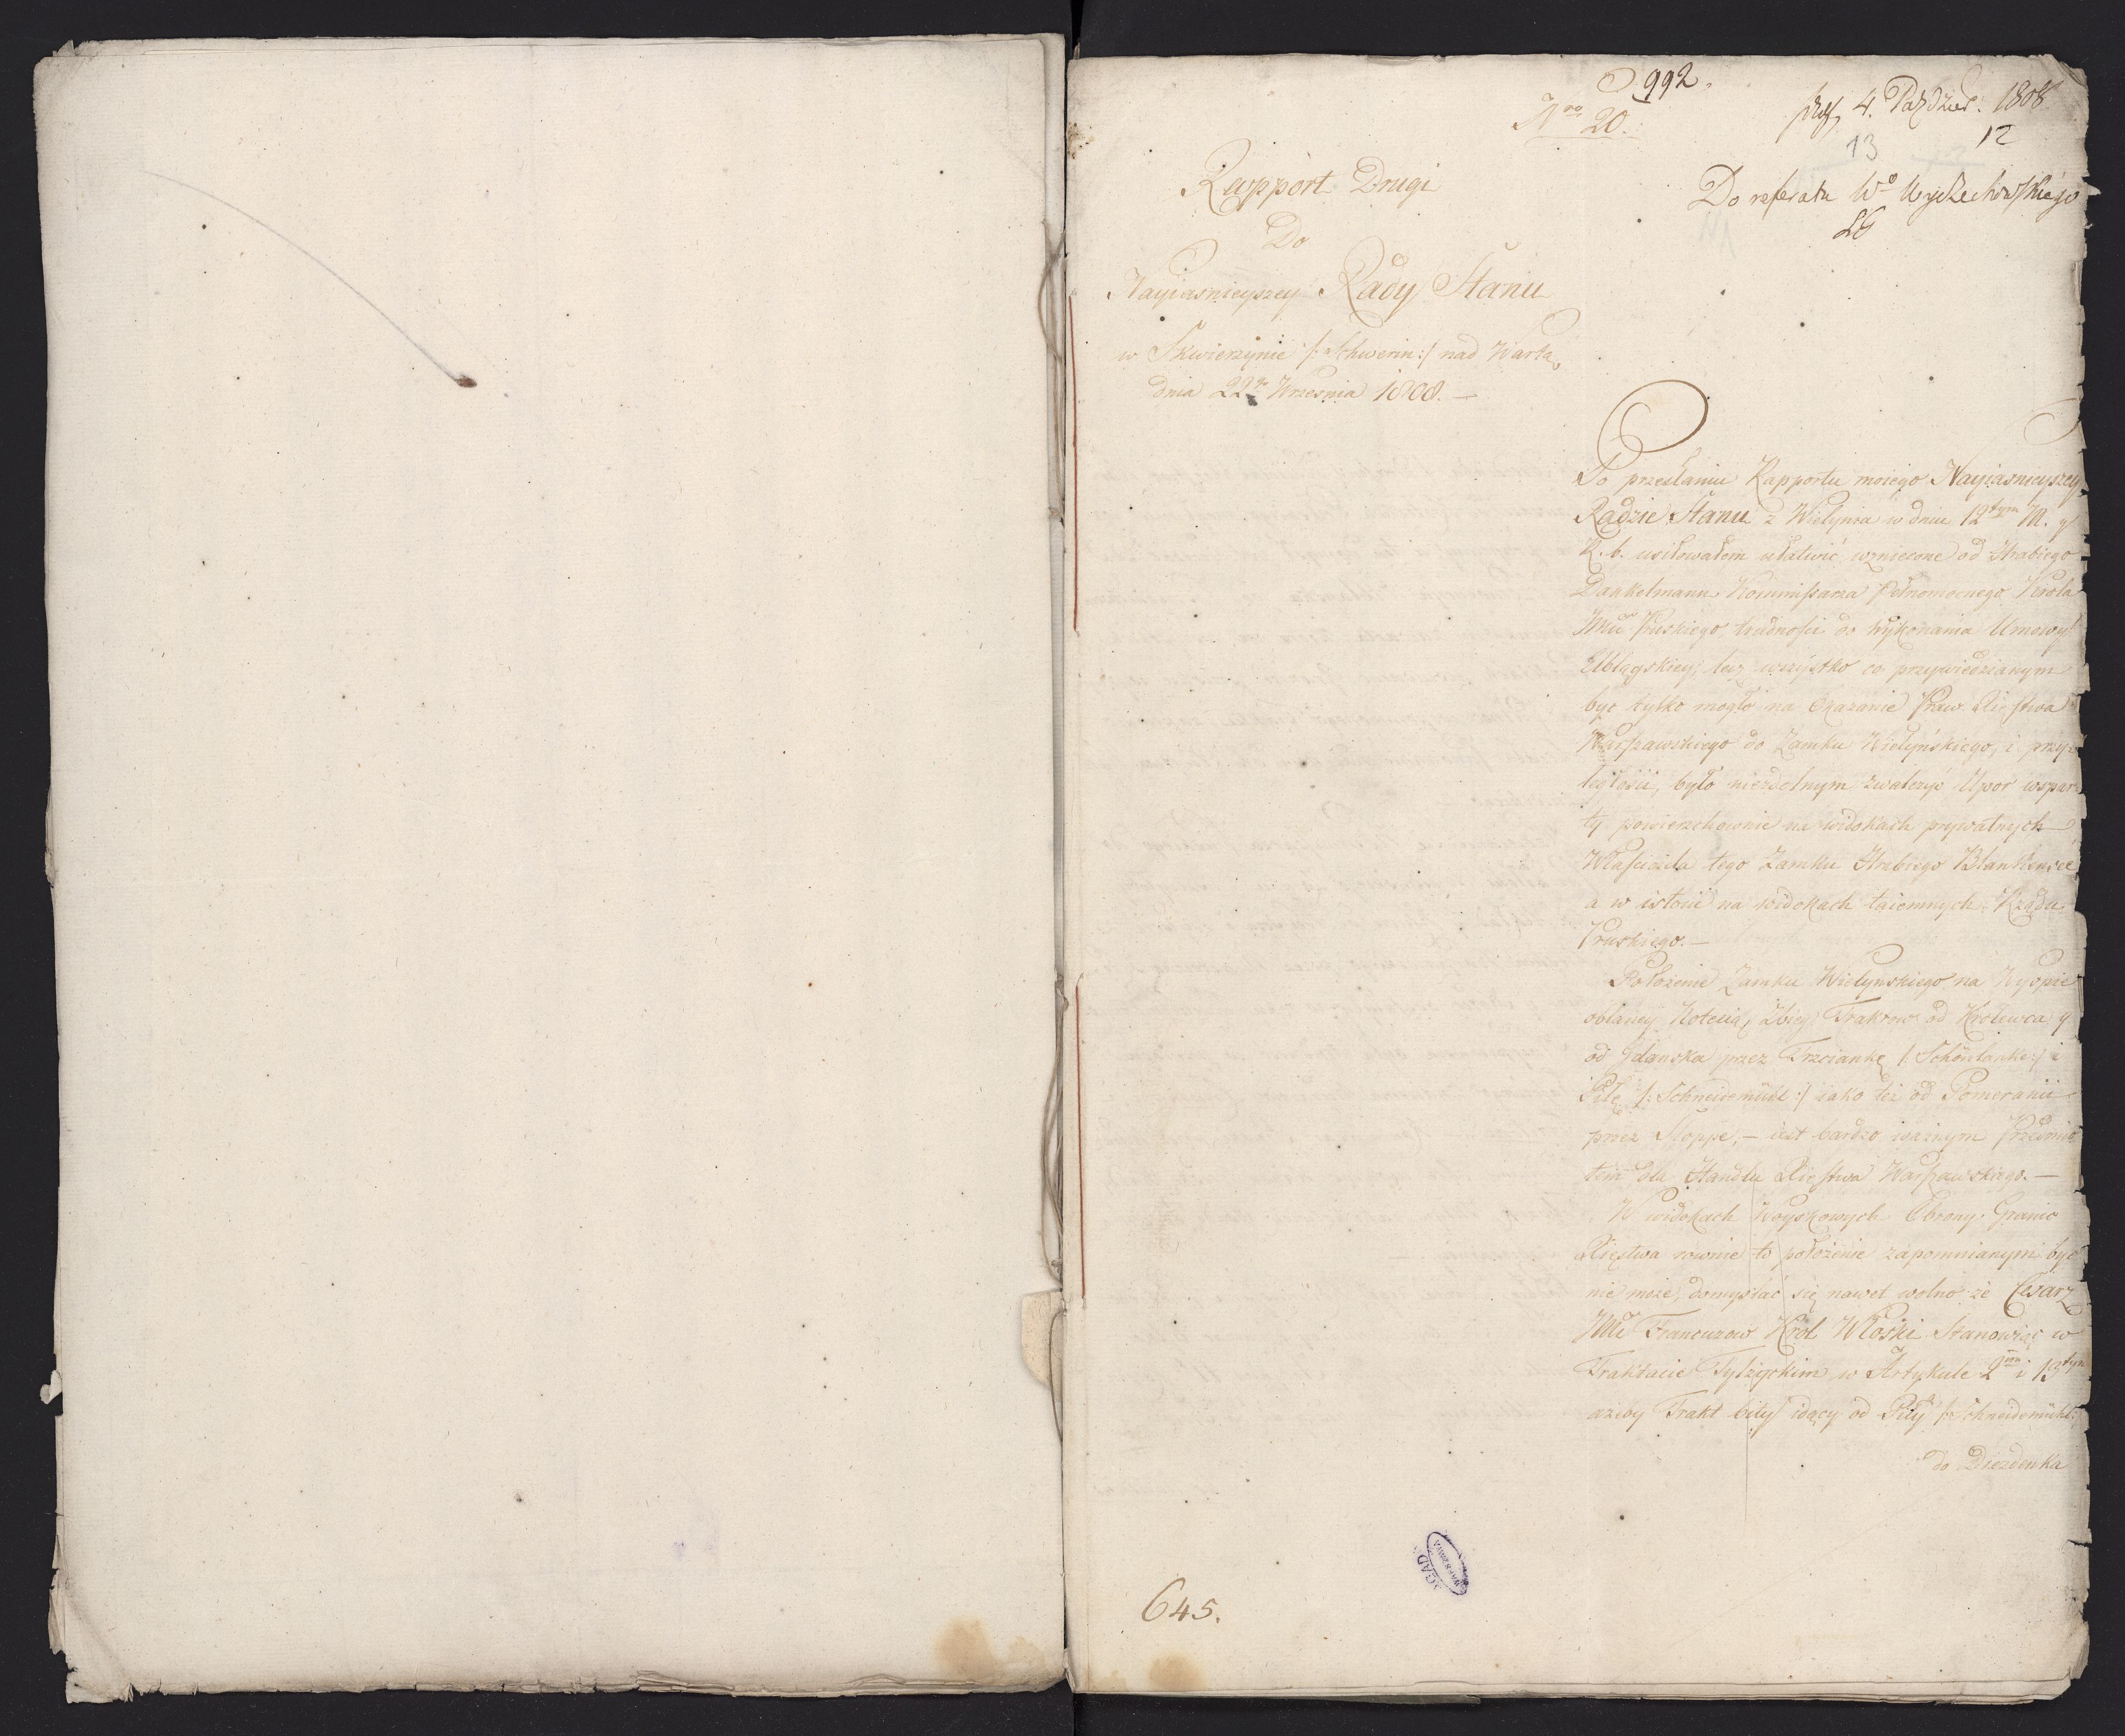 992.
Nro 20.
4. Paździer. 1808
13 12
Do referatu Wo Wyczechowskiego
LG
Rapport Drugi
Do
Nayiasnieyszey Rady Stanu
w Skwierzynie /: Schwerin :/ nad Wartą
dnia 22go Wrzesnia 1808. —
Po przesłaniu Rapportu moiego Nayiasnieyszey
Radzie Stanu z Wielynia w dniu 12tym M. y
R. b. usiłowałem ułatwić wzniecone od Hrabiego
Dankelmann Kommissarza Pełnomocnego Króla
Jmci Pruskiego trudności do wykonania Umowy
Elblągskiey, lecz wszystko co przywiedzianym
być tylko mogło na Okazanie Praw Xięstwa
Warszawskiego do Zamku Wielyńskiego, i przy-
ległości, było niezdolnym zwalczyć Upor wspar-
ty powierzchownie na widokach prywatnych
Właściciela tego Zamku Hrabiego Blankensee
a w istocie na widokach taiemnych Rządu
Pruskiego. —
Położenie Zamku Wielynskiego na Wyspie
oblaney Notecią, zbieg Traktow od Krolewca y
od Gdanska przez Trzciankę /: Schönlanke :/ i
Piłę /: Schneidemühl :/ iako też od Pomeranii
przez Sloppe, — iest bardzo ważnym Przedmio-
tem dla Handlu Xięstwa Warszawskiego. —
W widokach Woyskowych Obrony Granic
Xięstwa rownie to położenie zapomnianym być
nie może, domyslać się nawet wolno że Cesarz
Jmć Francuzow Krol Włoski Stanowiąc w
Traktacie Tylżyckim w Artykule 2gim i 13tym
ażeby Trakt bity idący od Piły /: Schneidemühl :/
do Drezdenka
645.
AGAD
WARSZAWA